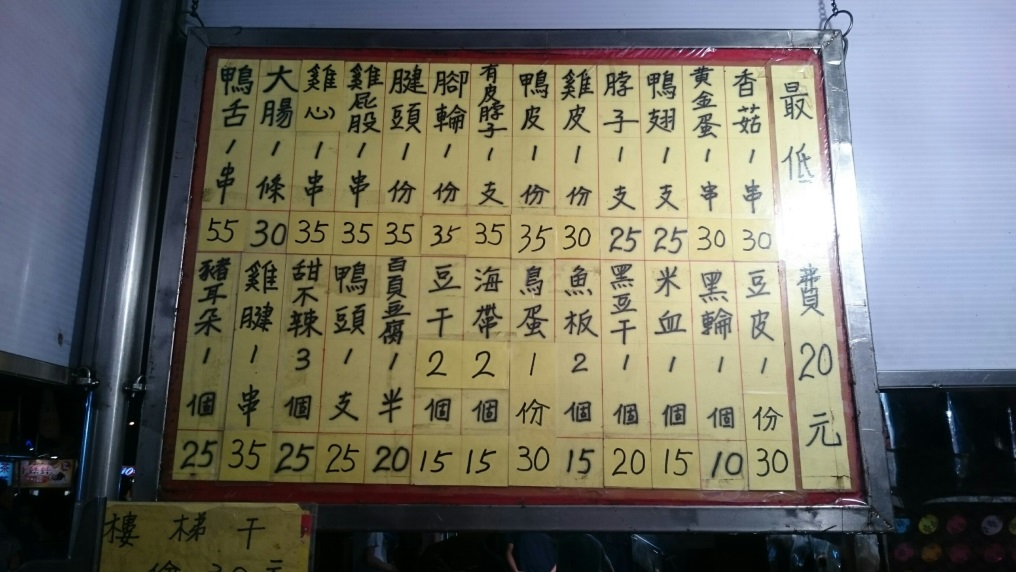 最低費20元
香菇1串30
黄金蛋1串30
鴨翅1支25
脖子1支25
雞皮1份30
鴨皮1份35
有皮脖子1支35
腳輪1份35
腱頭1份35
雞屁股1串35
雞心1串35
大腸1條30
鴨舌1串55
豆皮1份30
黑輪1個10
米血1個15
黑豆干1個20
魚板2個15
鳥蛋1份30
海帶2個15
豆干2個15
百頁豆腐1半20
鴨頭1支25
甜不辣3個25
雞腱1串35
豬耳朵1個25
樓梯干